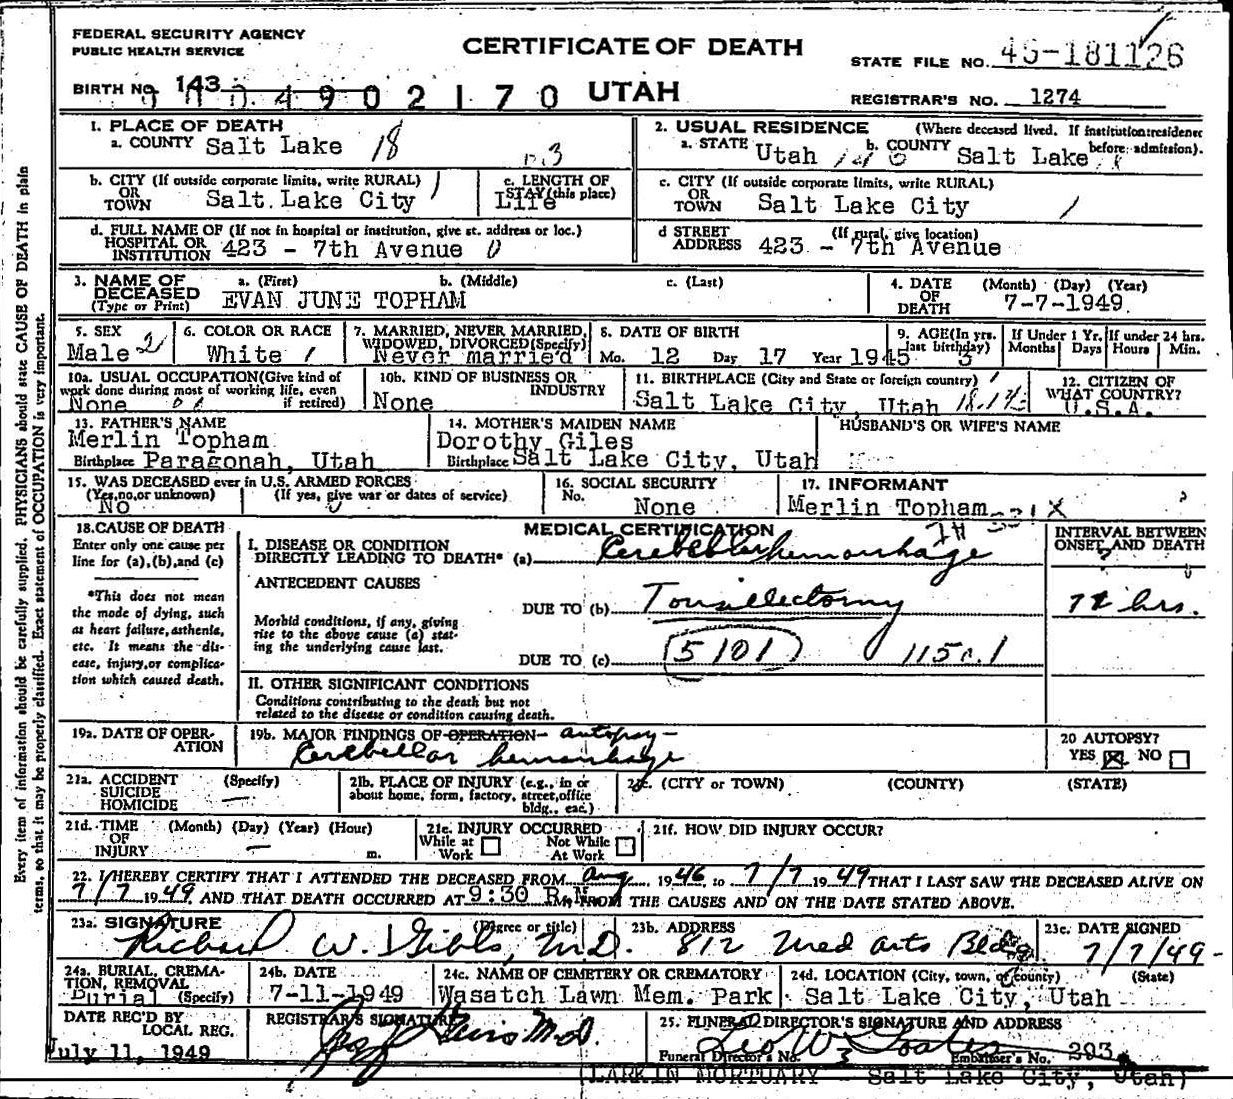 FEDERAL SECURITY AGENCY
PUBLIC HEALTH SERVICE
CERTIFICATE OF DEATH
STATE FILE NO. 46-181126
BIRTH NO. 143
4902170 UTAH
REGISTRAR'S NO. 1274
Every item of information should be carefully supplied. PHYSICIANS should state CAUSE OF DEATH in plain
terms, so that it may be properly classified. Exact statement of OCCUPATION is very important.
1. PLACE OF DEATH
a. COUNTY Salt Lake 18
2. USUAL RESIDENCE (Where deceased lived. If institution: residence before admission).
a. STATE Utah b. COUNTY Salt Lake
b. CITY (If outside corporate limits, write RURAL) OR TOWN Salt Lake City
c. LENGTH OF STAY (this place) Life
c. CITY (If outside corporate limits, write RURAL) OR TOWN Salt Lake City
d. FULL NAME OF (If not in hospital or institution, give st. address or loc.)
HOSPITAL OR INSTITUTION 423 - 7th Avenue 0
d STREET ADDRESS (If rural, give location) 423 - 7th Avenue
3. NAME OF DECEASED (Type or Print) a. (First) b. (Middle) c. (Last)
EVAN JUNE TOPHAM
4. DATE OF DEATH (Month) (Day) (Year)
7-7-1949
5. SEX Male 2
6. COLOR OR RACE White 1
7. MARRIED, NEVER MARRIED, WIDOWED, DIVORCED (Specify) Never married
8. DATE OF BIRTH Mo. 12 Day 17 Year 1945
9. AGE (In yrs. last birthday) 3
If Under 1 Yr. Months Days
If under 24 hrs. Hours Min.
10a. USUAL OCCUPATION (Give kind of work done during most of working life, even if retired) None
10b. KIND OF BUSINESS OR INDUSTRY None
11. BIRTHPLACE (City and State or foreign country)
Salt Lake City, Utah
12. CITIZEN OF WHAT COUNTRY? U.S.A.
13. FATHER'S NAME
Merlin Topham
Birthplace Paragonah, Utah
14. MOTHER'S MAIDEN NAME
Dorothy Giles
Birthplace Salt Lake City, Utah
HUSBAND'S OR WIFE'S NAME
15. WAS DECEASED ever in U.S. ARMED FORCES
(Yes, no, or unknown) (If yes, give war or dates of service)
No
16. SOCIAL SECURITY No. None
17. INFORMANT
Merlin Topham
18. CAUSE OF DEATH
Enter only one cause per line for (a), (b), and (c)
*This does not mean the mode of dying, such as heart failure, asthenia, etc. It means the disease, injury, or complication which caused death.
MEDICAL CERTIFICATION
INTERVAL BETWEEN ONSET AND DEATH
I. DISEASE OR CONDITION DIRECTLY LEADING TO DEATH* (a) Cerebellar hemorrhage
ANTECEDENT CAUSES
DUE TO (b) Tonsillectomy
hrs.
Morbid conditions, if any, giving rise to the above cause (a) stating the underlying cause last.
DUE TO (c) 5101
II. OTHER SIGNIFICANT CONDITIONS
Conditions contributing to the death but not related to the disease or condition causing death.
19a. DATE OF OPERATION
19b. MAJOR FINDINGS OF OPERATION autopsy -
Cerebellar hemorrhage
20 AUTOPSY?
YES ☒ NO ☐
21a. ACCIDENT SUICIDE HOMICIDE (Specify) —
21b. PLACE OF INJURY (e.g., in or about home, form, factory, street, office bldg., eac.)
21c. (CITY or TOWN) (COUNTY) (STATE)
21d. TIME OF INJURY (Month) (Day) (Year) (Hour) — m.
21e. INJURY OCCURRED
While at Work ☐ Not While At Work ☐
21f. HOW DID INJURY OCCUR?
22. I HEREBY CERTIFY THAT I ATTENDED THE DECEASED FROM Aug 1946 to 7/7 1949 THAT I LAST SAW THE DECEASED ALIVE ON
7/7 1949 AND THAT DEATH OCCURRED AT 9:30 P.M. FROM THE CAUSES AND ON THE DATE STATED ABOVE.
23a. SIGNATURE (Degree or title)
Richard W. Gibbs, M.D.
23b. ADDRESS 812 Med Arts Bldg
23c. DATE SIGNED 7/7/49
24a. BURIAL, CREMATION, REMOVAL (Specify) Burial
24b. DATE 7-11-1949
24c. NAME OF CEMETERY OR CREMATORY
Wasatch Lawn Mem. Park
24d. LOCATION (City, town, of county) (State)
Salt Lake City, Utah
DATE REC'D BY LOCAL REG.
July 11, 1949
REGISTRAR'S SIGNATURE
M.D.
25. FUNERAL DIRECTOR'S SIGNATURE AND ADDRESS
Leo W Goates
Funeral Director's No. 3 Embalmer's No. 293
(LARKIN MORTUARY - Salt Lake City, Utah)